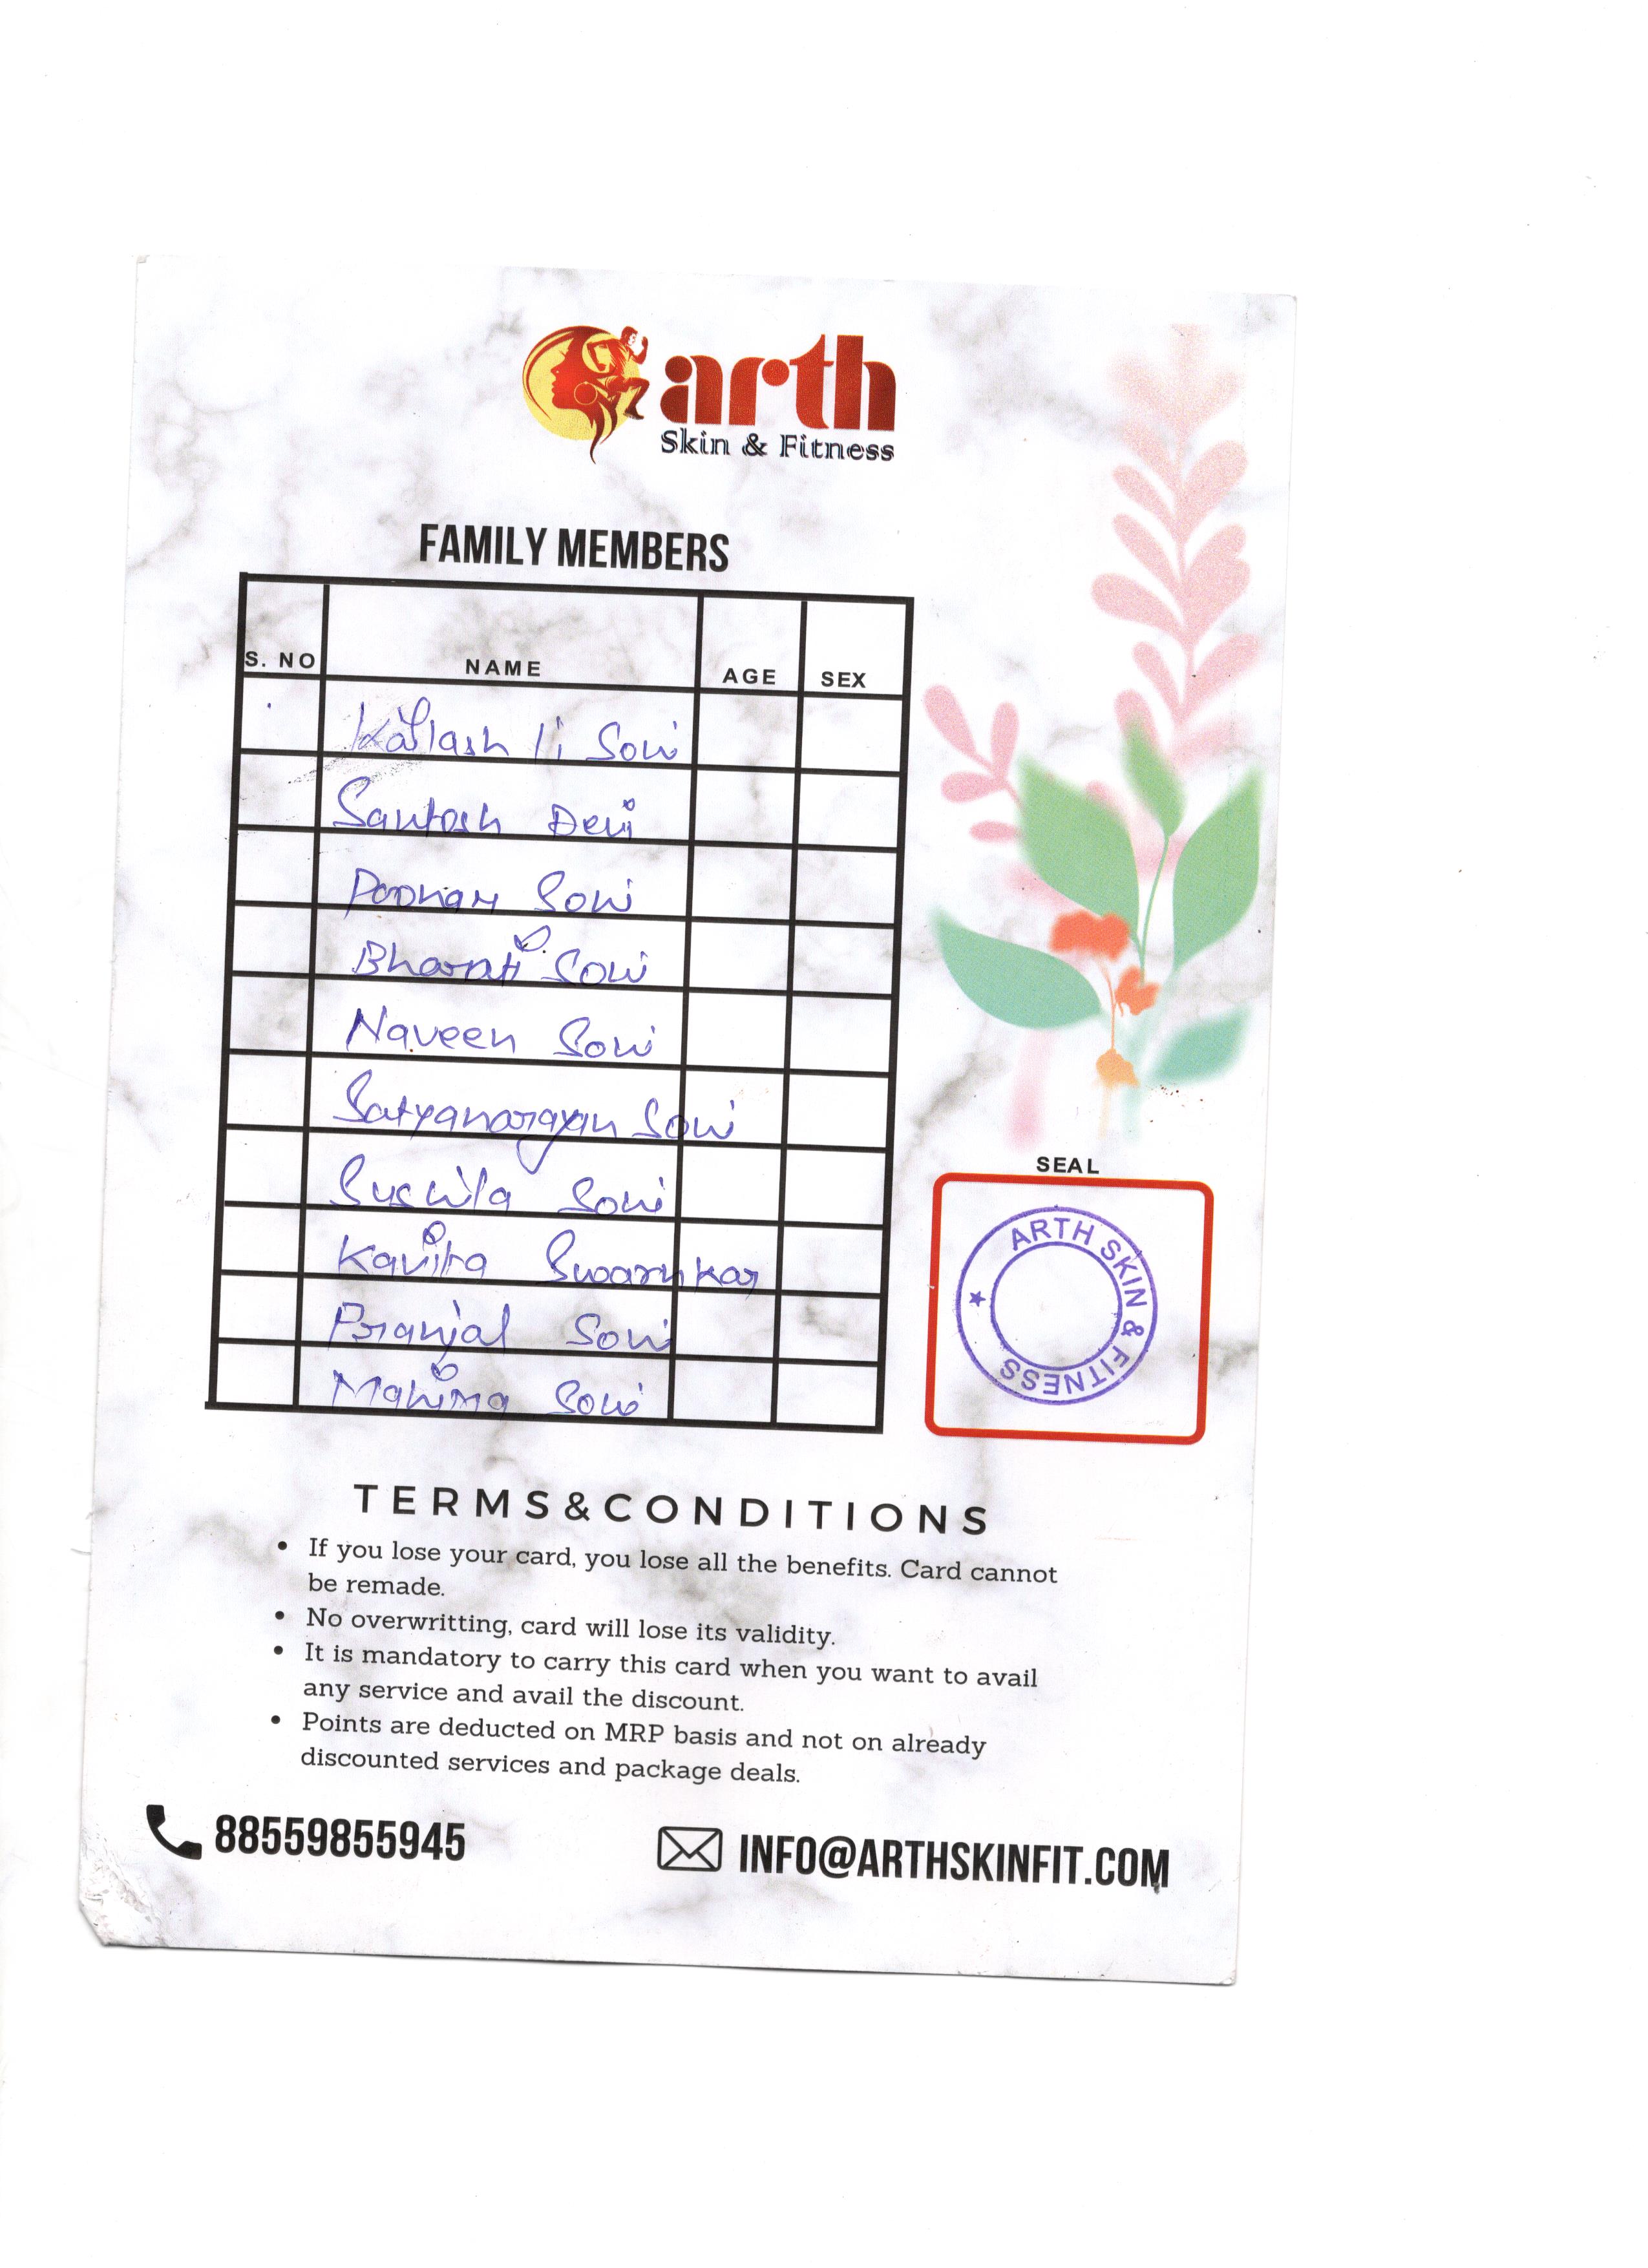 arth
Skin & Fitness
FAMILY MEMBERS
S. NO NAME AGE SEX
Kailash Ji Soni
Santosh Devi
Poonam Soni
Bharati Soni
Naveen Soni
Satyanarayan Soni
Sushila Soni
Kavita Swarnkar
Pranjal Soni
Mahima Soni
SEAL
ARTH SKIN & FITNESS
TERMS&CONDITIONS
• If you lose your card, you lose all the benefits. Card cannot
be remade.
• No overwritting, card will lose its validity.
• It is mandatory to carry this card when you want to avail
any service and avail the discount.
• Points are deducted on MRP basis and not on already
discounted services and package deals.
88559855945
INFO@ARTHSKINFIT.COM